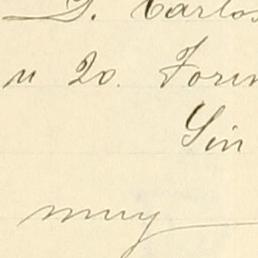 D. Carlos
n 20. Forin
Sin
muy